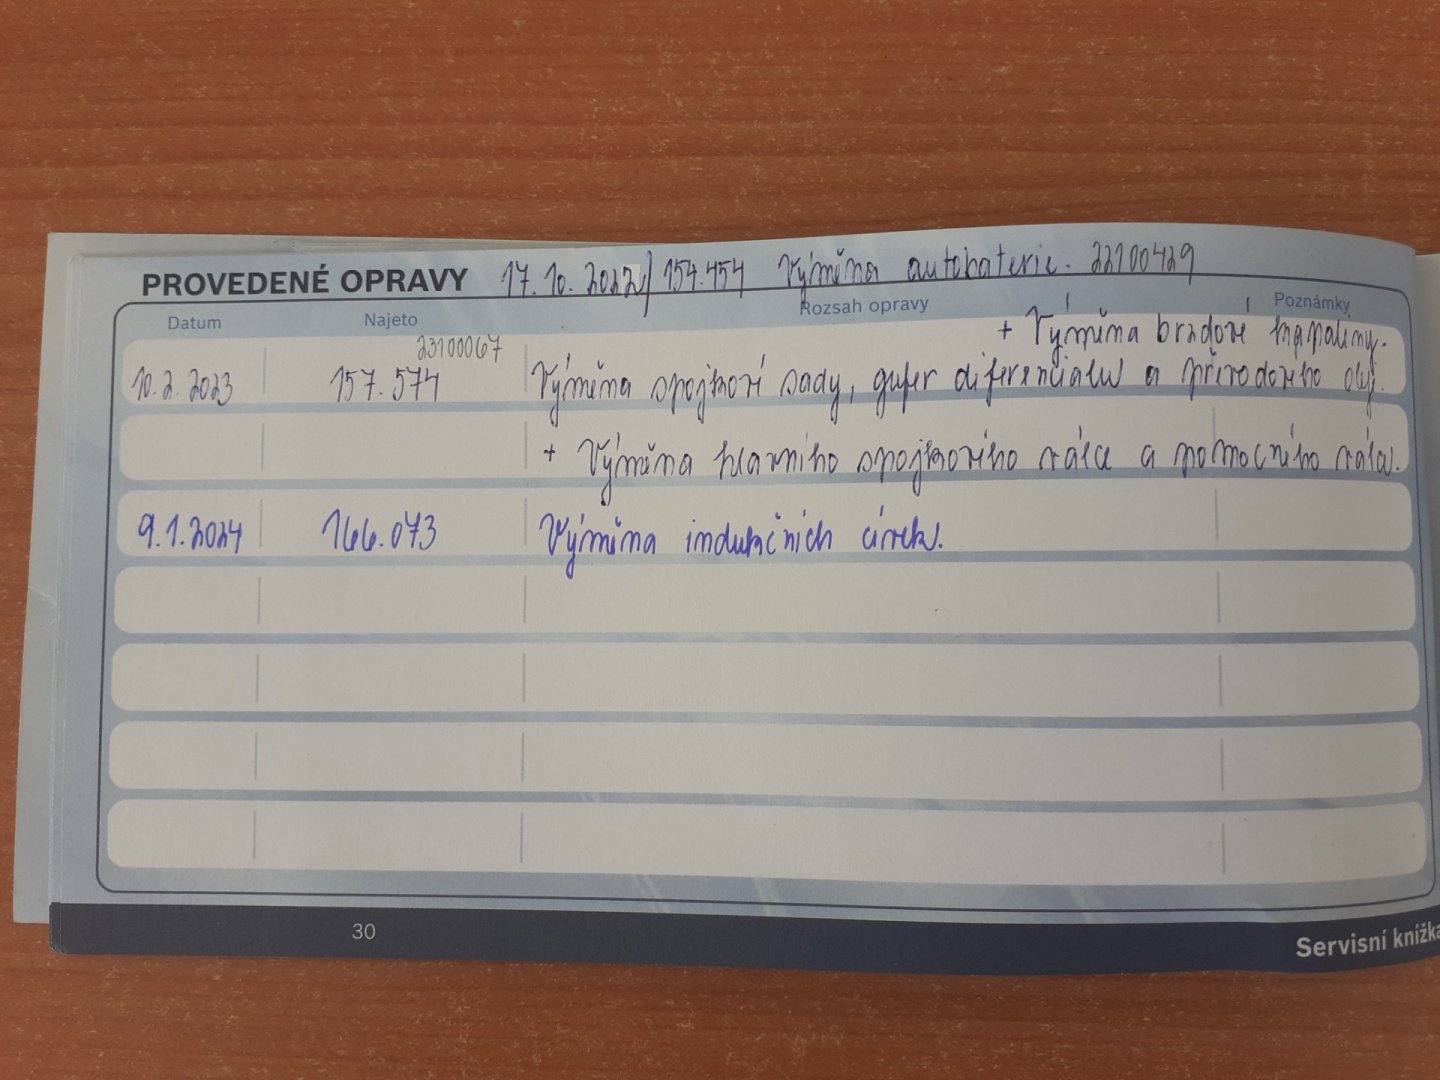 PROVEDENÉ OPRAVY 17.10.2022/ 154.454 Výměna autobaterie. 22100429
Datum Najeto Rozsah opravy Poznámky
+ Výměna brzdové kapaliny.
23100067
10.2.2023 157.574 Výměna spojkové sady, gufer diferenciálu a převodového olej.
+ Výměna hlavního spojkového válce a pomocného válce.
9.1.2024 166.073 Výměna indukčních cívek.
30
Servisní knížka